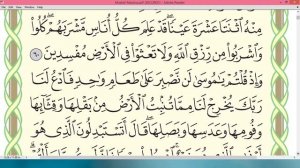 مِنْهُ اثْنَتَا عَشْرَةَ عَيْنًا قَدْ عَلِمَ كُلُّ أُنَاسٍ مَشْرَبَهُمْ كُلُوا
وَاشْرَبُوا مِن رِّزْقِ اللَّهِ وَلَا تَعْثَوْا فِي الْأَرْضِ مُفْسِدِينَ ٦٠
وَإِذْ قُلْتُمْ يَا مُوسَى لَن نَّصْبِرَ عَلَى طَعَامٍ وَاحِدٍ فَادْعُ لَنَا
رَبَّكَ يُخْرِجْ لَنَا مِمَّا تُنبِتُ الْأَرْضُ مِن بَقْلِهَا وَقِثَّائِهَا
وَفُومِهَا وَعَدَسِهَا وَبَصَلِهَا قَالَ أَتَسْتَبْدِلُونَ الَّذِي هُوَ